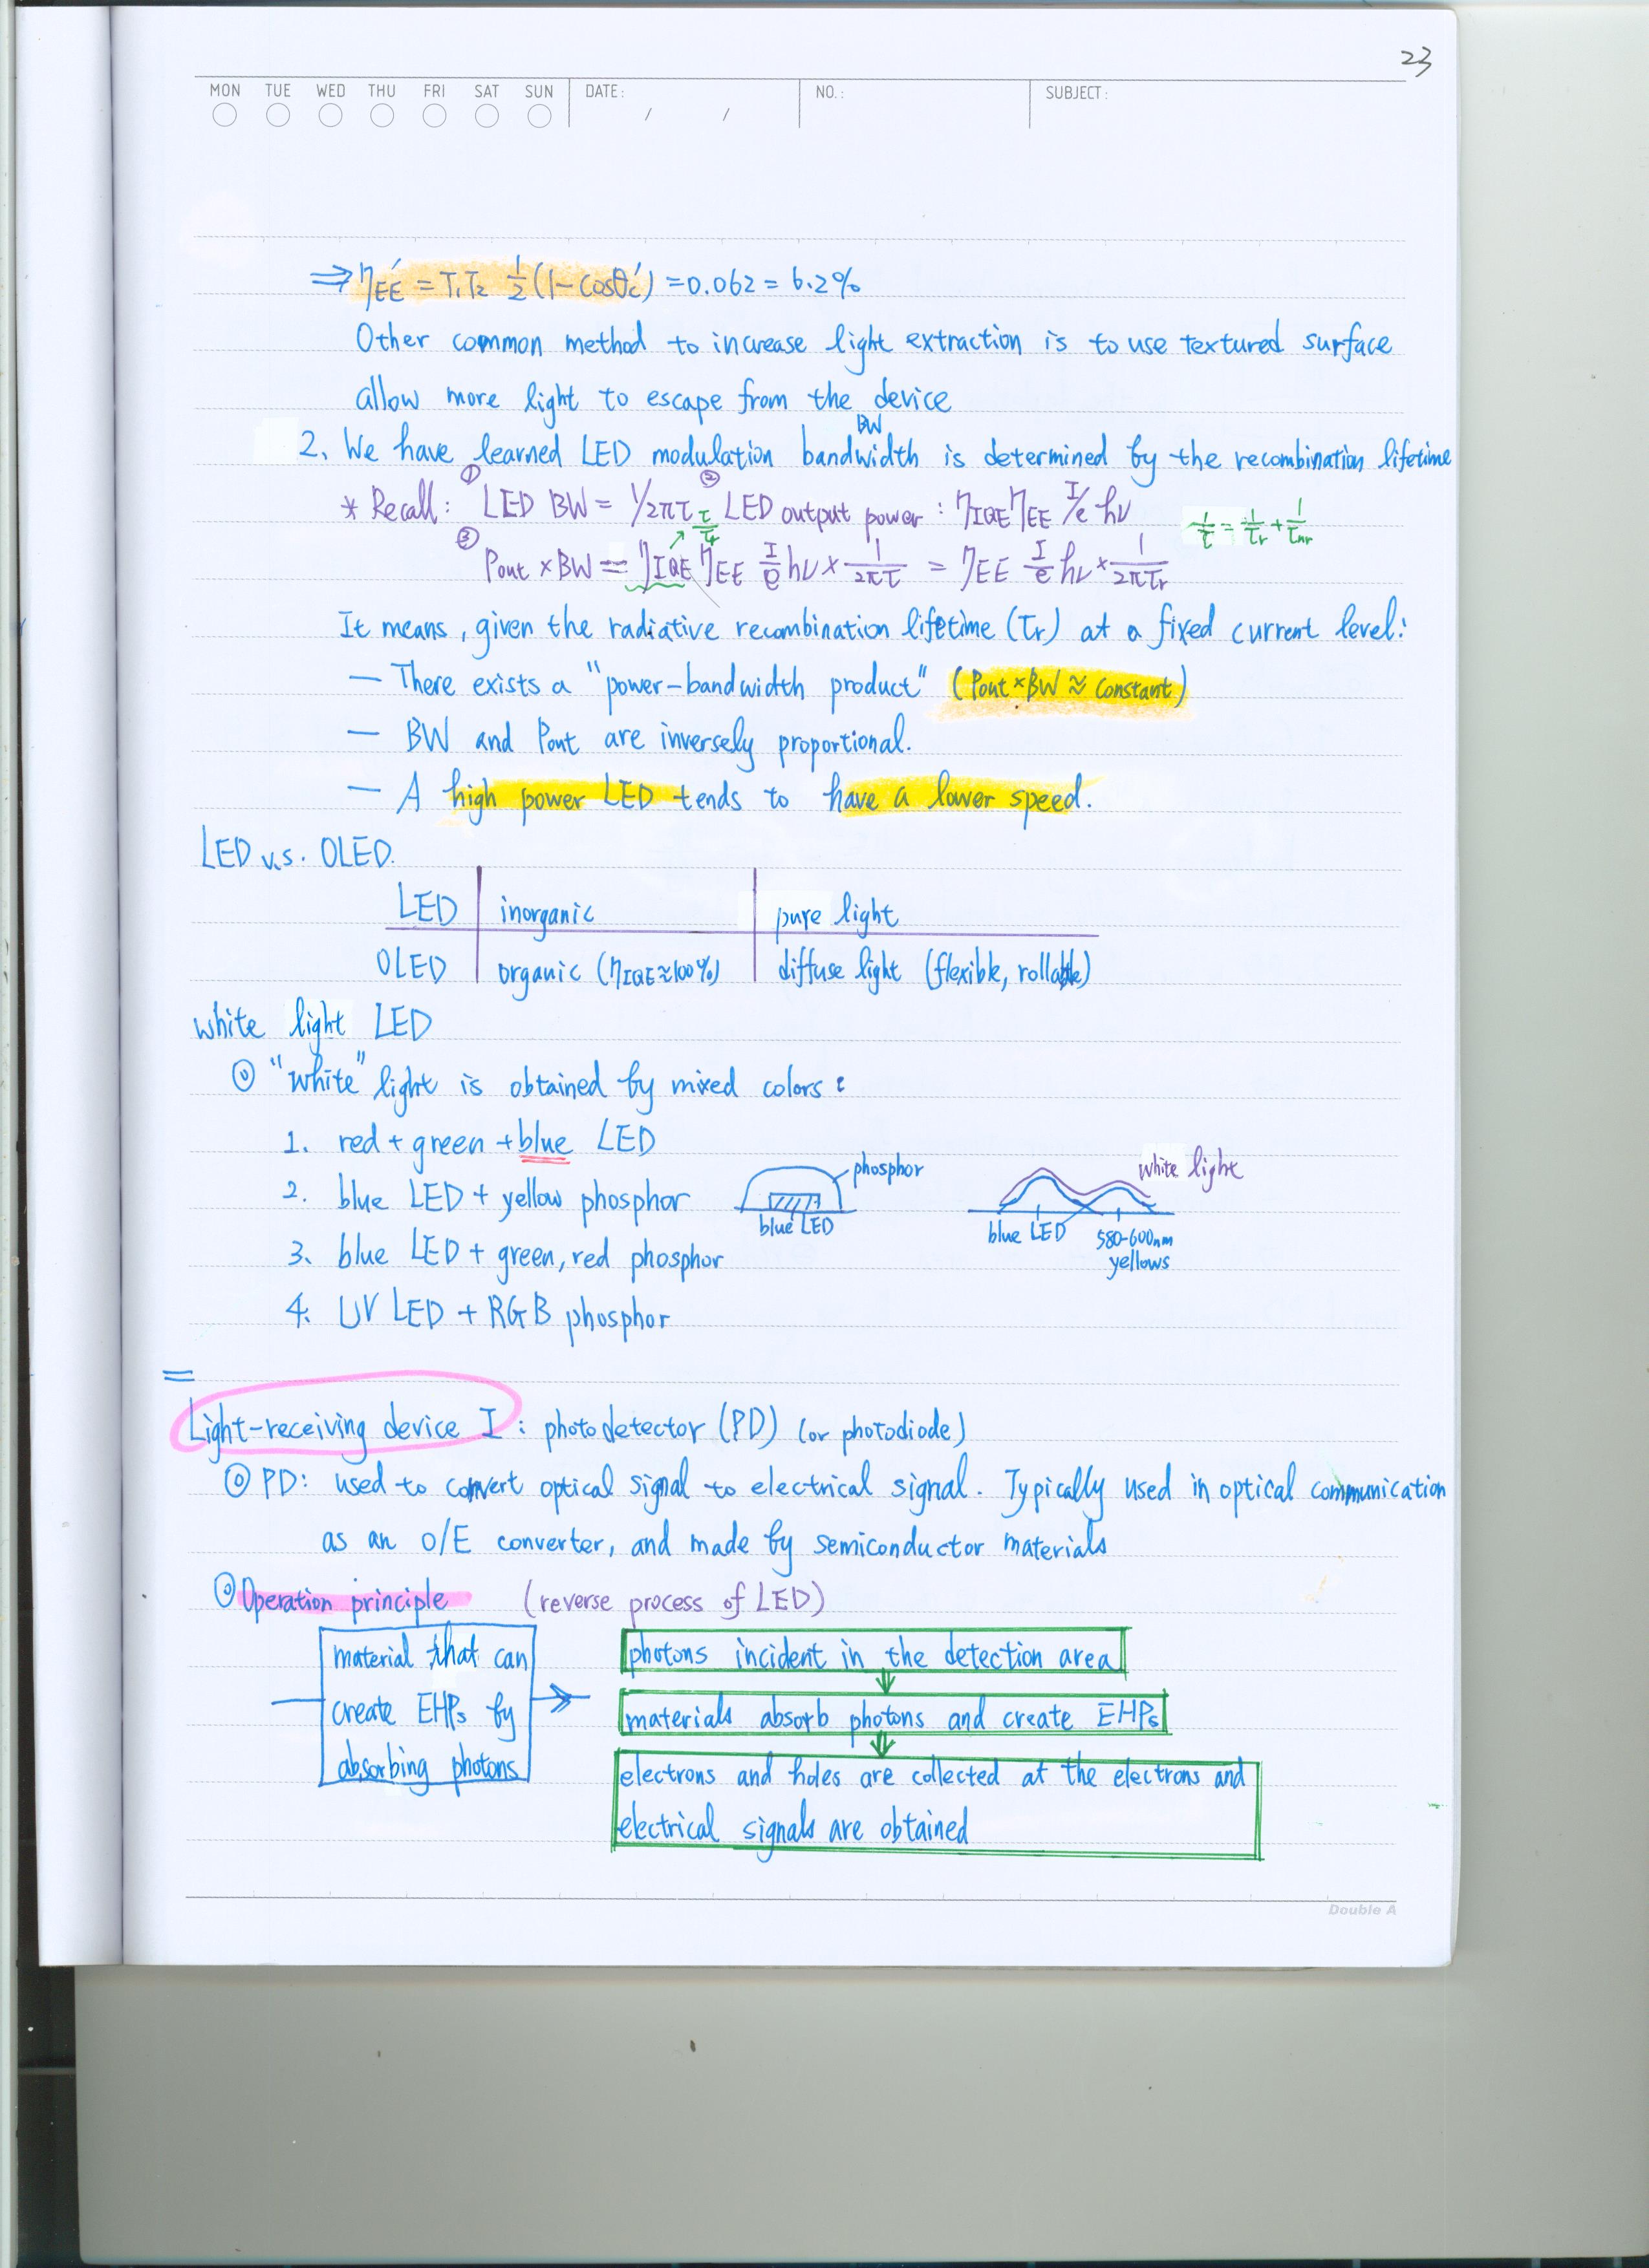 23
MON TUE WED THU FRI SAT SUN DATE: / / NO.: SUBJECT:
⇒ η'EE = T₁T₂ 1/2 (1-cosθc') = 0.062 = 6.2%
Other common method to increase light extraction is to use textured surface
allow more light to escape from the device
BW
2. We have learned LED modulation bandwidth is determined by the recombination lifetime
* Recall: ① LED BW = 1/2πτ ② LED output power: ηIQE ηEE I/e hν 1/τ = 1/τr + 1/τnr
τ/τr
③ Pout × BW = ηIQE ηEE I/e hν × 1/2πτ = ηEE I/e hν × 1/2πτr
It means, given the radiative recombination lifetime (τr) at a fixed current level:
— There exists a "power-bandwidth product" (Pout × BW ≈ constant)
— BW and Pout are inversely proportional.
— A high power LED tends to have a lower speed.
LED v.s. OLED.
LED inorganic pure light
OLED organic (ηIQE≈100%) diffuse light (flexible, rollable)
white light LED
◎ "white" light is obtained by mixed colors:
1. red + green + blue LED
2. blue LED + yellow phosphor
phosphor
blue LED
white light
blue LED 580-600nm
yellows
3. blue LED + green, red phosphor
4. UV LED + RGB phosphor
=
Light-receiving device I : photodetector (PD) (or photodiode)
◎ PD: used to convert optical signal to electrical signal. Typically used in optical communication
as an O/E converter, and made by semiconductor materials
◎ Operation principle (reverse process of LED)
material that can
create EHPs by
absorbing photons
photons incident in the detection area
materials absorb photons and create EHPs
electrons and holes are collected at the electrons and
electrical signals are obtained
Double A